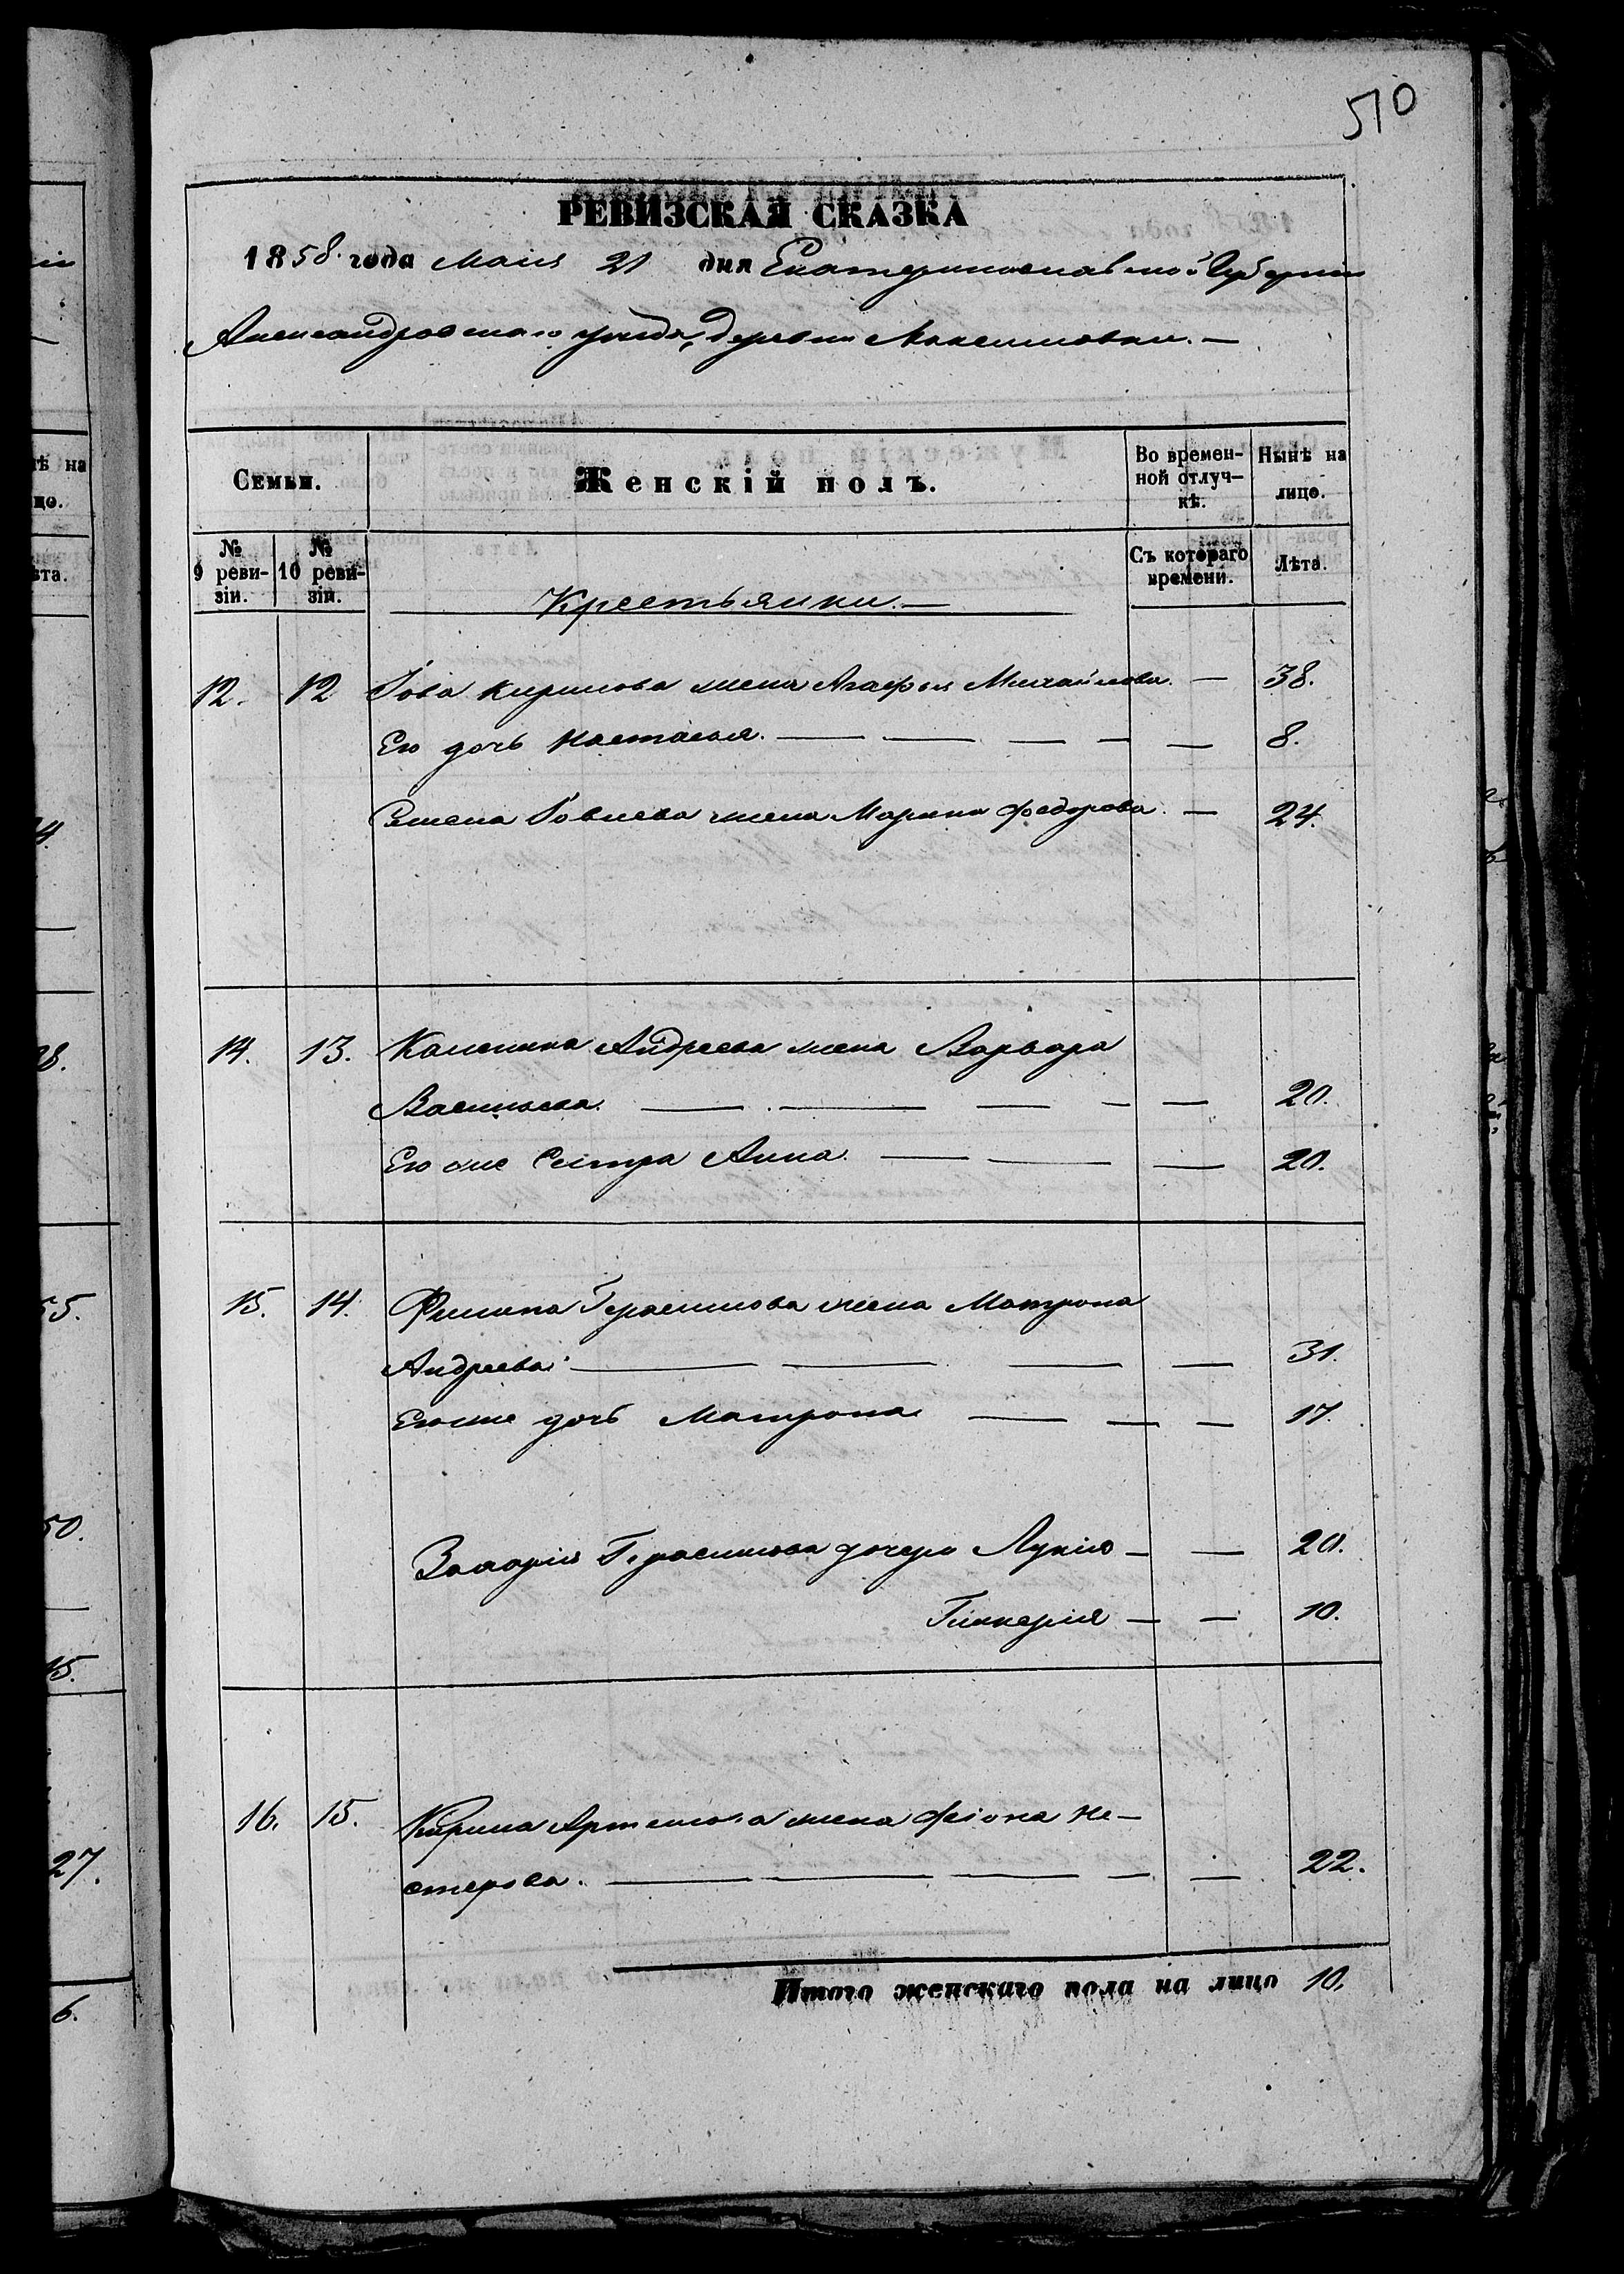 510
РЕВИЗСКАЯ СКАЗКА
1858. года Маія 21 дня Екатеринославской Губерніи
Александровскаго уѣзда, деревни Максимовки. —
Семьи. Женскій полъ. Во времен-ной отлуч-кѣ. Нынѣ на лицо.
№ 9 реви-зіи. № 10 реви-зіи. Съ котораго времени. Лѣта.
Крестьянки. —
12. 12 Іова Кирилова жена Агафья Михайлова. — 38.
Его дочь Настасья. — — — — — 8.
Семена Іовлева жена Марина Федорова. — 24.
14. 13. Каленика Андреева жена Варвара
Васильева. — — — — — 20.
Его же Сестра Анна. — — — 20.
15. 14. Филипа Герасимова жена Матрона
Андреева. — — — — 31.
Его же дочь Матрона — — — 17.
Захарія Герасимова дочери Лукія — — 20.
Гликерія — — 10.
16. 15. Кирила Артемова жена Феіона Не-
стерова. — — — — — 22.
Итого женскаго пола на лицо 10.
ѣ на
цо.
ѣта.
4.
8.
55.
50.
15.
27.
6.